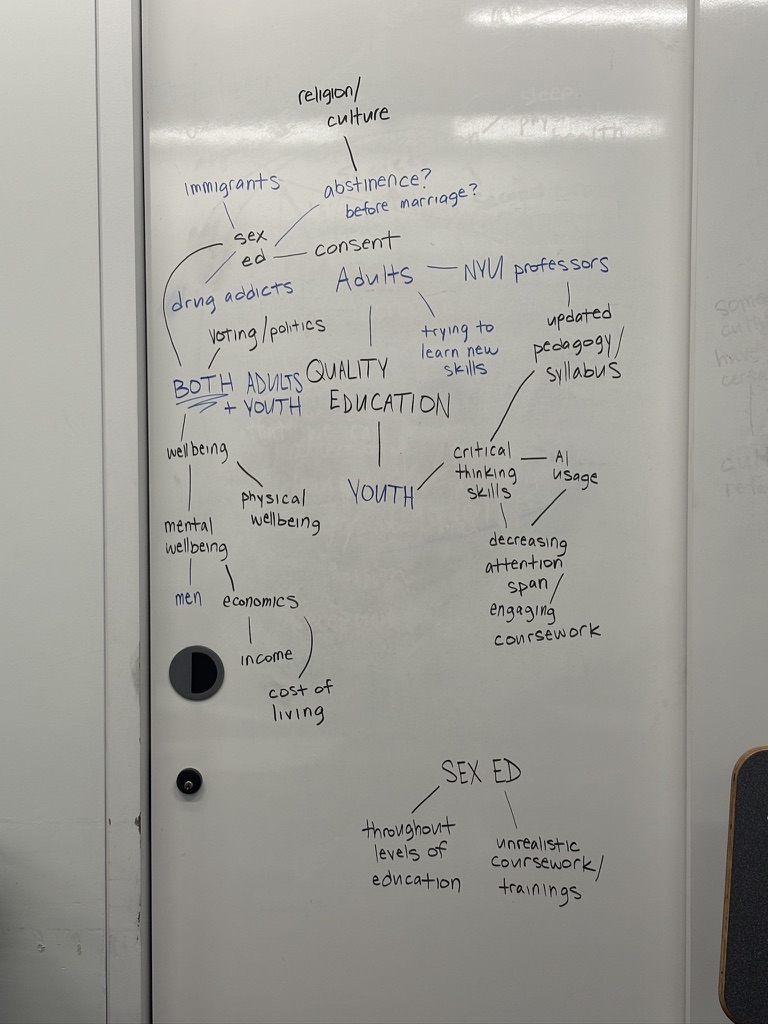 religion/
culture
immigrants
abstinence?
before marriage?
sex
ed
consent
drug addicts
Adults
NYU professors
voting/politics
trying to
learn new
skills
updated
pedagogy/
syllabus
BOTH ADULTS
+ YOUTH
QUALITY
EDUCATION
wellbeing
physical
wellbeing
YOUTH
critical
thinking
skills
AI
usage
mental
wellbeing
decreasing
attention
span/
engaging
coursework
men
economics
income
cost of
living
SEX ED
throughout
levels of
education
unrealistic
coursework/
trainings